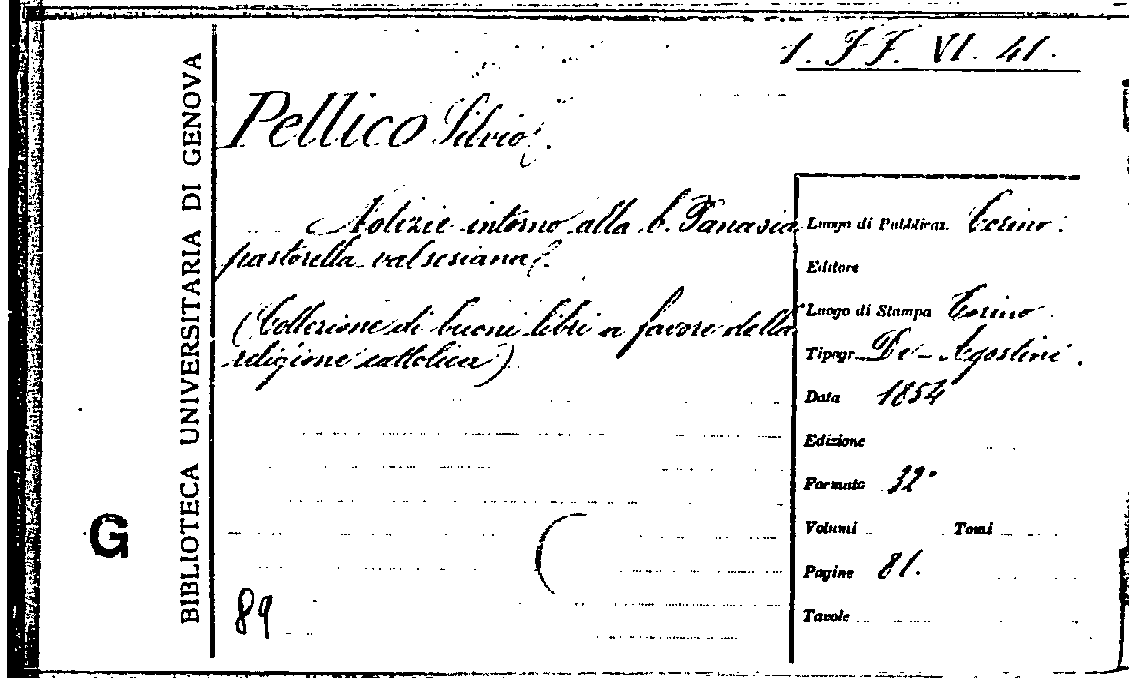 1. FF. VI. 41.
Pellico Silvio.
Notizie intorno alla b. Panasia
pastorella valsesiana.
(Collezione di buoni libri a favore della
religione cattolica)
89
Luogo di Pubblicaz. Torino.
Editore
Luogo di Stampa Torino.
Tipogr. De-Agostini.
Data 1854
Edizione
Formato 32°
Volumi Tomi
Pagine 81.
Tavole
BIBLIOTECA UNIVERSITARIA DI GENOVA
G